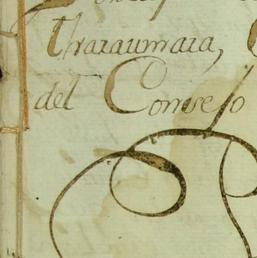 tharaumara,
del Consejo